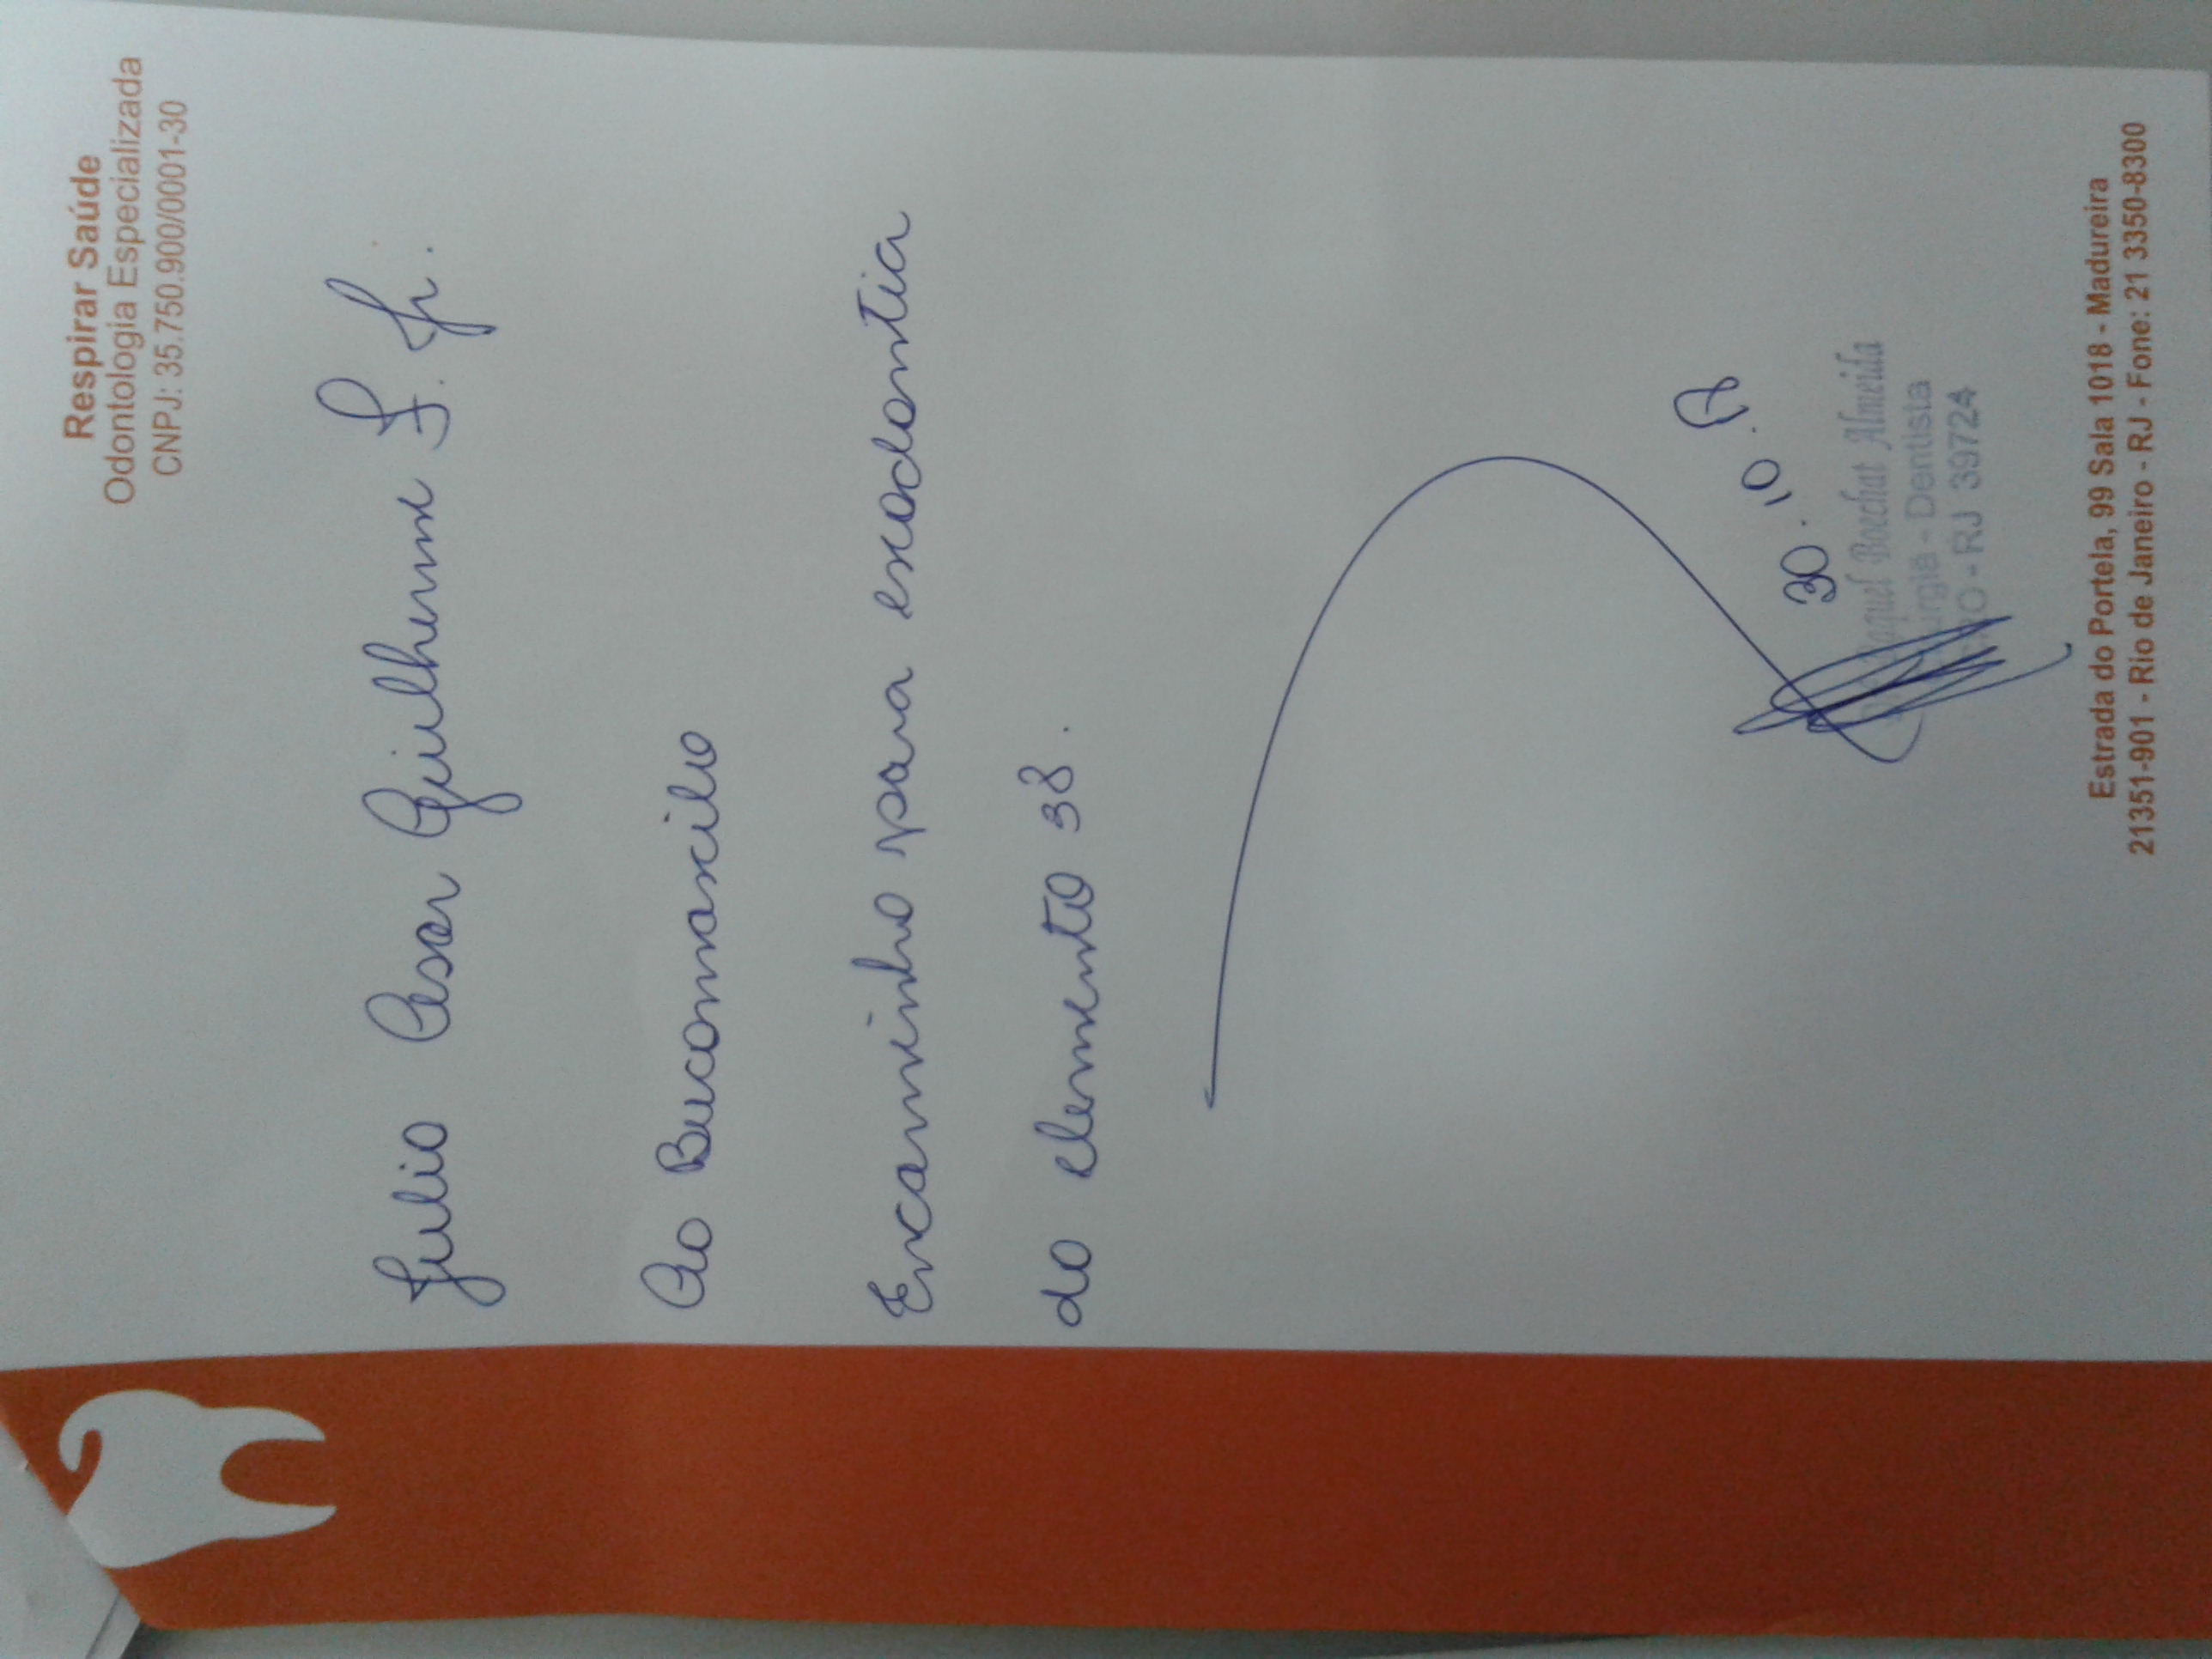 Respirar Saúde
Odontologia Especializada
CNPJ: 35.750.900/0001-30
Julio Cesar Guilherme S. Jr.
Ao Bucomaxilo
Encaminho para exodontia
do elemento 38.
30.10.17
Boechat Almeida
- Dentista
- RJ 39724
Estrada do Portela, 99 Sala 1018 - Madureira
21351-901 - Rio de Janeiro - RJ - Fone: 21 3350-8300